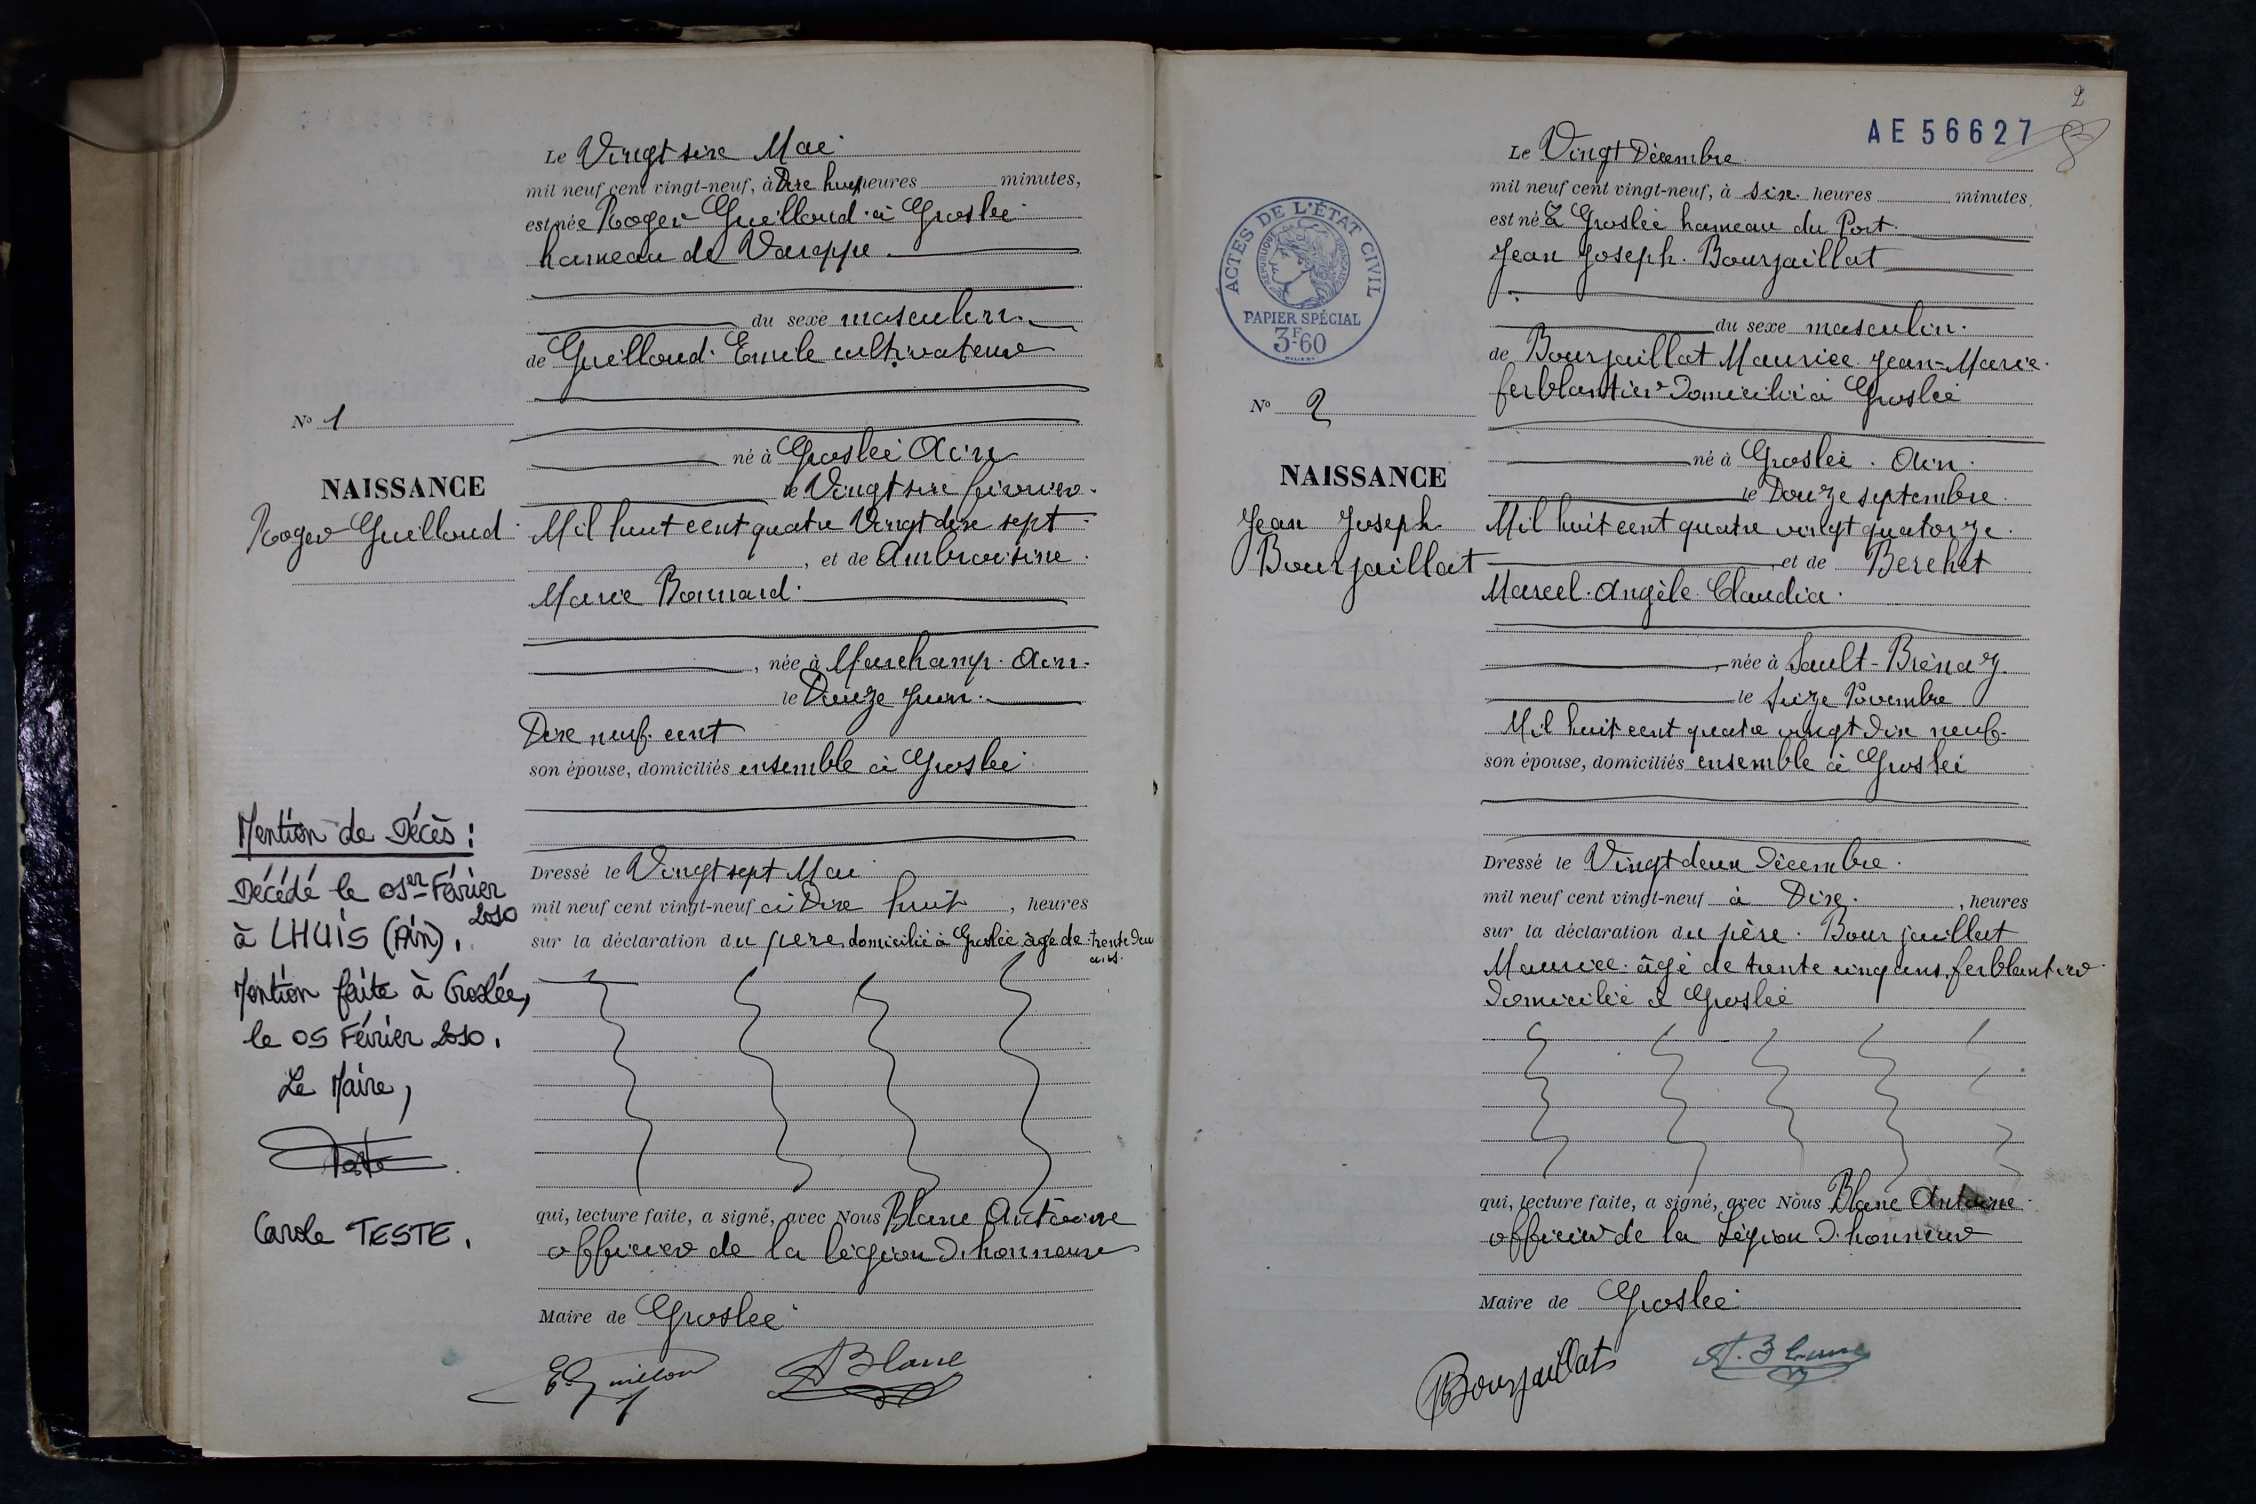 Le Vingt six Mai
mil neuf cent vingt-neuf, à Dix huit heures minutes,
est née Roger Guilloud à Groslée
hameau de Vareppe
du sexe masculin
de Guilloud Emile cultivateur
né à Groslée Ain
le Vingt six février
Mil huit cent quatre Vingt dix sept
, et de Ambroisine
Marie Bonnard
, née à Marchamp. Ain.
le Douze Juin
Dix neuf cent
son épouse, domiciliés ensemble à Groslée
Dressé le Vingt sept Mai
mil neuf cent vingt-neuf à Dix huit , heures
sur la déclaration du père domicilié à Groslée âgé de trente deux
ans.
qui, lecture faite, a signé, avec Nous Blanc Antoine
officier de la légion d'honneur
Maire de Groslée
E. Guillou
A Blanc
N° 1
NAISSANCE
Roger Guilloud
Mention de Décès :
Décédé le 01er Février
2010
à LHUIS (Ain).
Mention faite à Groslée,
le 05 Février 2010.
Le Maire,
Teste
Carole TESTE.
2
AE 56627
Le Vingt Décembre
mil neuf cent vingt-neuf, à six heures minutes,
est né à Groslée hameau du Port
Jean Joseph Bourjaillat
du sexe masculin.
de Bourjaillat Maurice Jean-Marie
ferblantier domicilié à Groslée
né à Groslée . Ain.
le Douze septembre
Mil huit cent quatre vingt quatorze.
et de Berchet
Marcel. Angèle Claudia.
, née à Sault-Brénaz
le Seize Novembre
Mil huit cent quatre vingt dix neuf
son épouse, domiciliés ensemble à Groslée
Dressé le Vingt deux Décembre.
mil neuf cent vingt-neuf à Dix , heures
sur la déclaration du père. Bourjaillat
Maurice âgé de trente cinq ans, ferblantier
domicilié à Groslée
qui, lecture faite, a signé, avec Nous Blanc Antoine
officier de la Légion d'honneur
Maire de Groslée
Bourjaillat
A. Blanc
ACTES DE L'ÉTAT CIVIL
RÉPUBLIQUE FRANÇAISE
PAPIER SPÉCIAL
3F60
N° 2
NAISSANCE
Jean Joseph
Bourjaillat